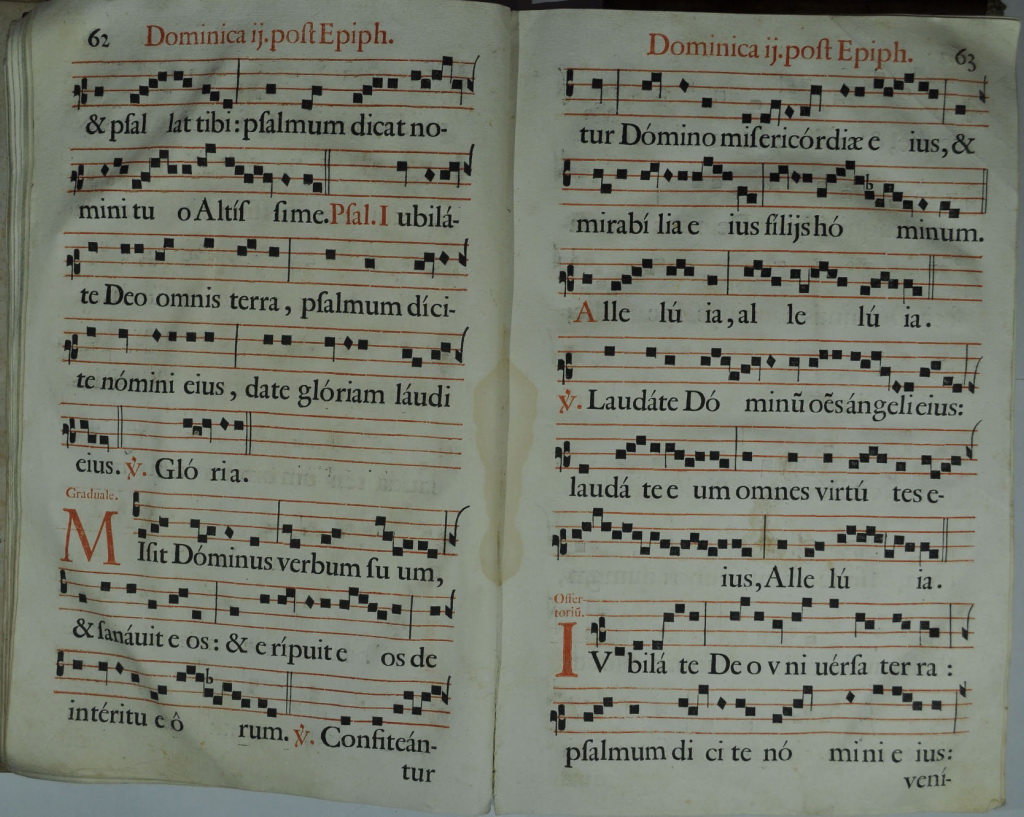 62 Dominica ij. poſt Epiph.
& pſal lat tibi: pſalmum dicat no-
mini tu o Altíſ ſime. Pſal. I ubilá-
te Deo omnis terra, pſalmum díci-
te nómini eius, date glóriam láudi
eius. ℣. Gló ria.
Graduale.
MIſit Dóminus verbum ſu um,
& ſanáuit e os: & e rípuit e os de
intéritu e ô rum. ℣. Confiteán-
tur
Dominica ij. poſt Epiph. 63
tur Dómino miſericórdiæ e ius, &
mirabí lia e ius fílijs hó minum.
Alle lú ia, al le lú ia.
℣. Laudáte Dó minũ oẽs ángeli eius:
laudá te e um omnes virtú tes e-
ius, Alle lú ia.
Offer-
toriũ.
IVbilá te Deo vni uérſa ter ra:
pſalmum di ci te nó mini e ius:
vení-